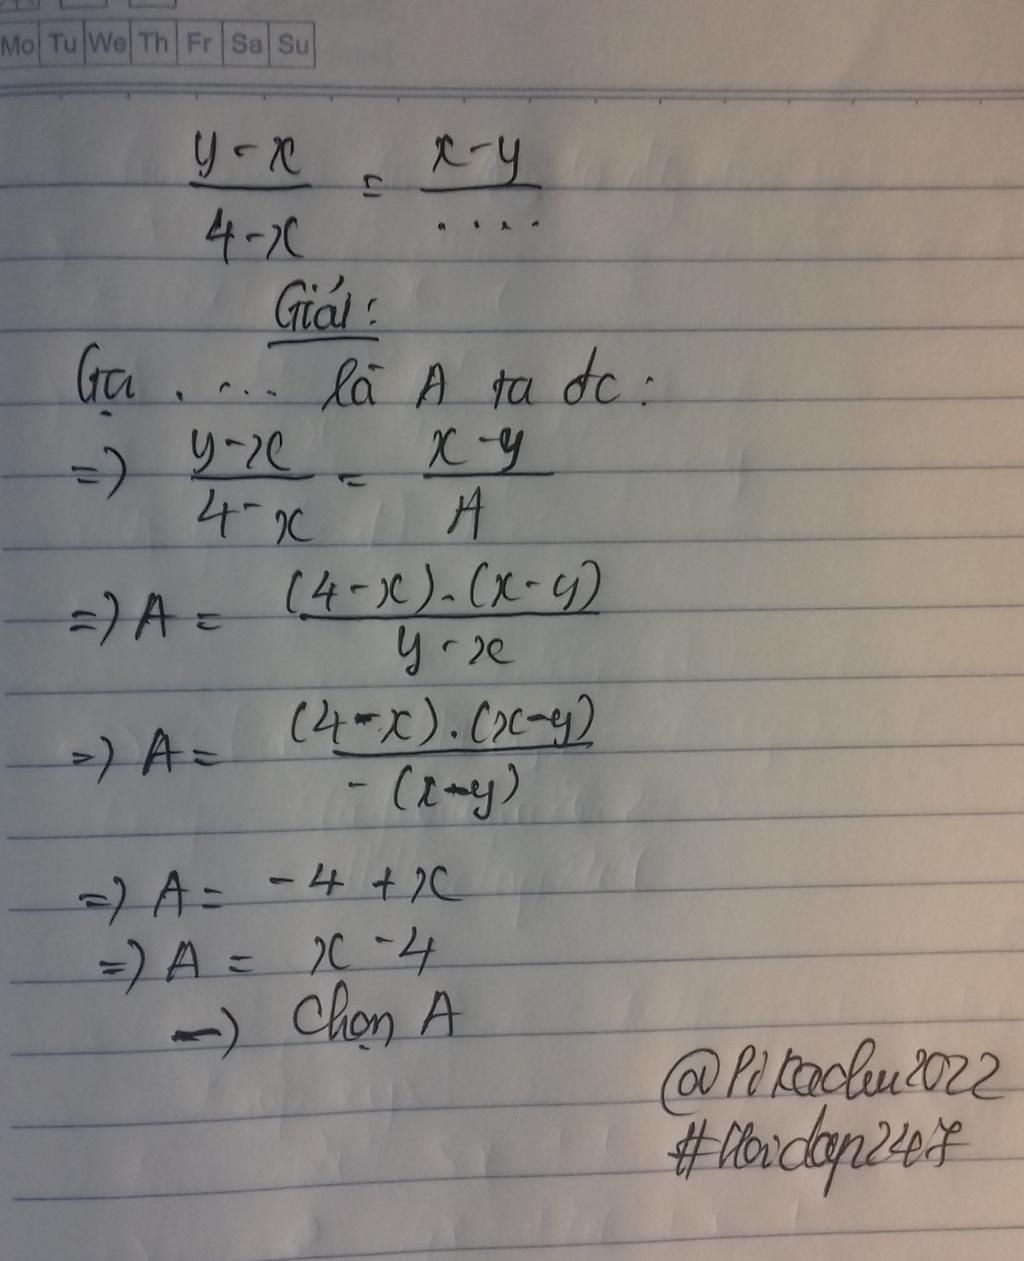 Mo Tu We Th Fr Sa Su
y-x / 4-x = x-y / ....
Giải:
Gọi ..... là A ta đc:
=) y-x / 4-x = x-y / A
=) A = (4-x).(x-y) / y-x
=) A = (4-x).(x-y) / -(x-y)
=) A = -4 + x
=) A = x - 4
-) Chọn A
@Pikachu2022
#Hoidap247